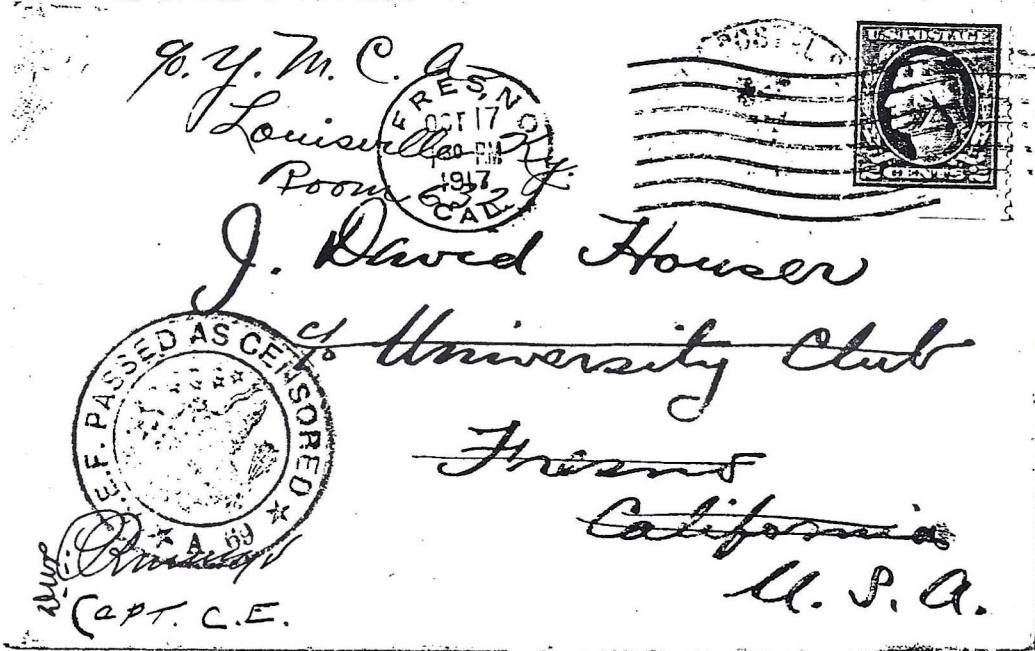 c/o Y. M. C. A.
Louisville Ky.
Room 632
FRESNO
OCT 17
30 PM
1917
CAL.
U.S. POSTAGE
CENTS
J. David Houser
c/o University Club
Fresno
California
U. S. A.
E.F. PASSED AS CENSORED
A 69
CAPT. C.E.